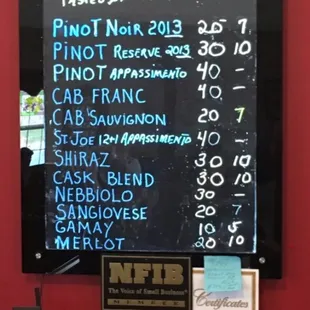 PINOT NOIR 2013 20 7
PINOT RESERVE 2013 30 10
PINOT APPASSIMENTO 40 -
CAB FRANC 40 -
CAB SAUVIGNON 20 7
ST. JOE 12+1 APPASSIMENTO 40 -
SHIRAZ 30 10
CASK BLEND 30 10
NEBBIOLO 30 -
SANGIOVESE 20 7
GAMAY 10 5
MERLOT 20 10
NFIB
The Voice of Small Business
MEMBER
Certificates